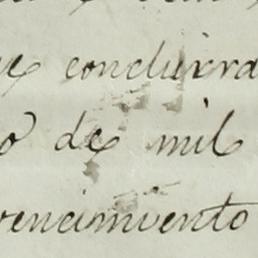 concluirra
de mil
vencimiento